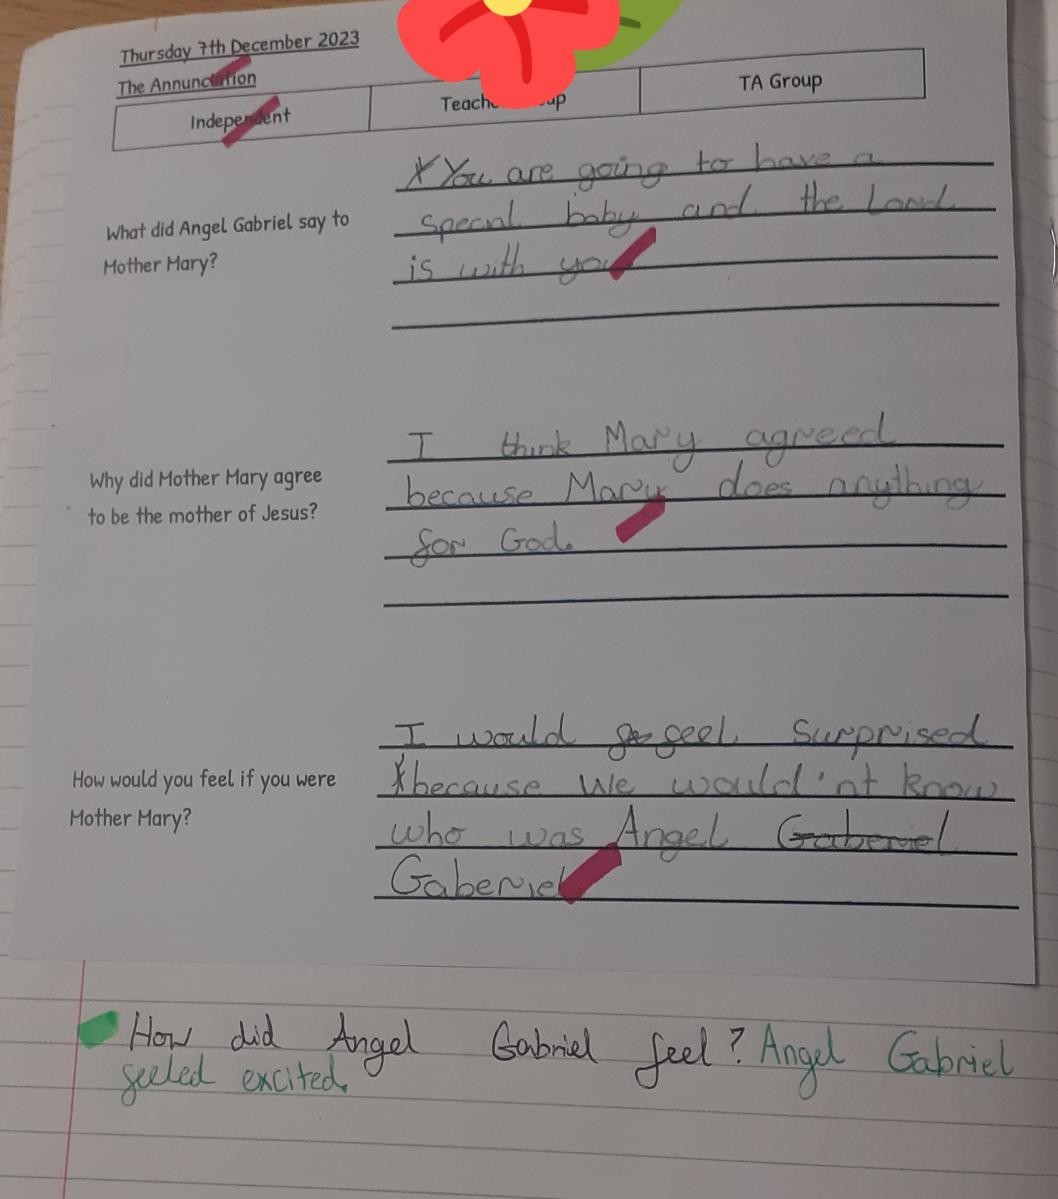 Thursday 7th December 2023
The Annunciation
Independent
TA Group
What did Angel Gabriel say to
Mother Mary?
You are going to have a
special baby and the Lord
is with you
Why did Mother Mary agree
to be the mother of Jesus?
I think Mary agreed
because Mary does anything
for God.
How would you feel if you were
Mother Mary?
I would feel surprised
because We would'nt know
who was Angel Gaberiel
Gaberiel
How did Angel Gabriel feel? Angel Gabriel
feeled excited.